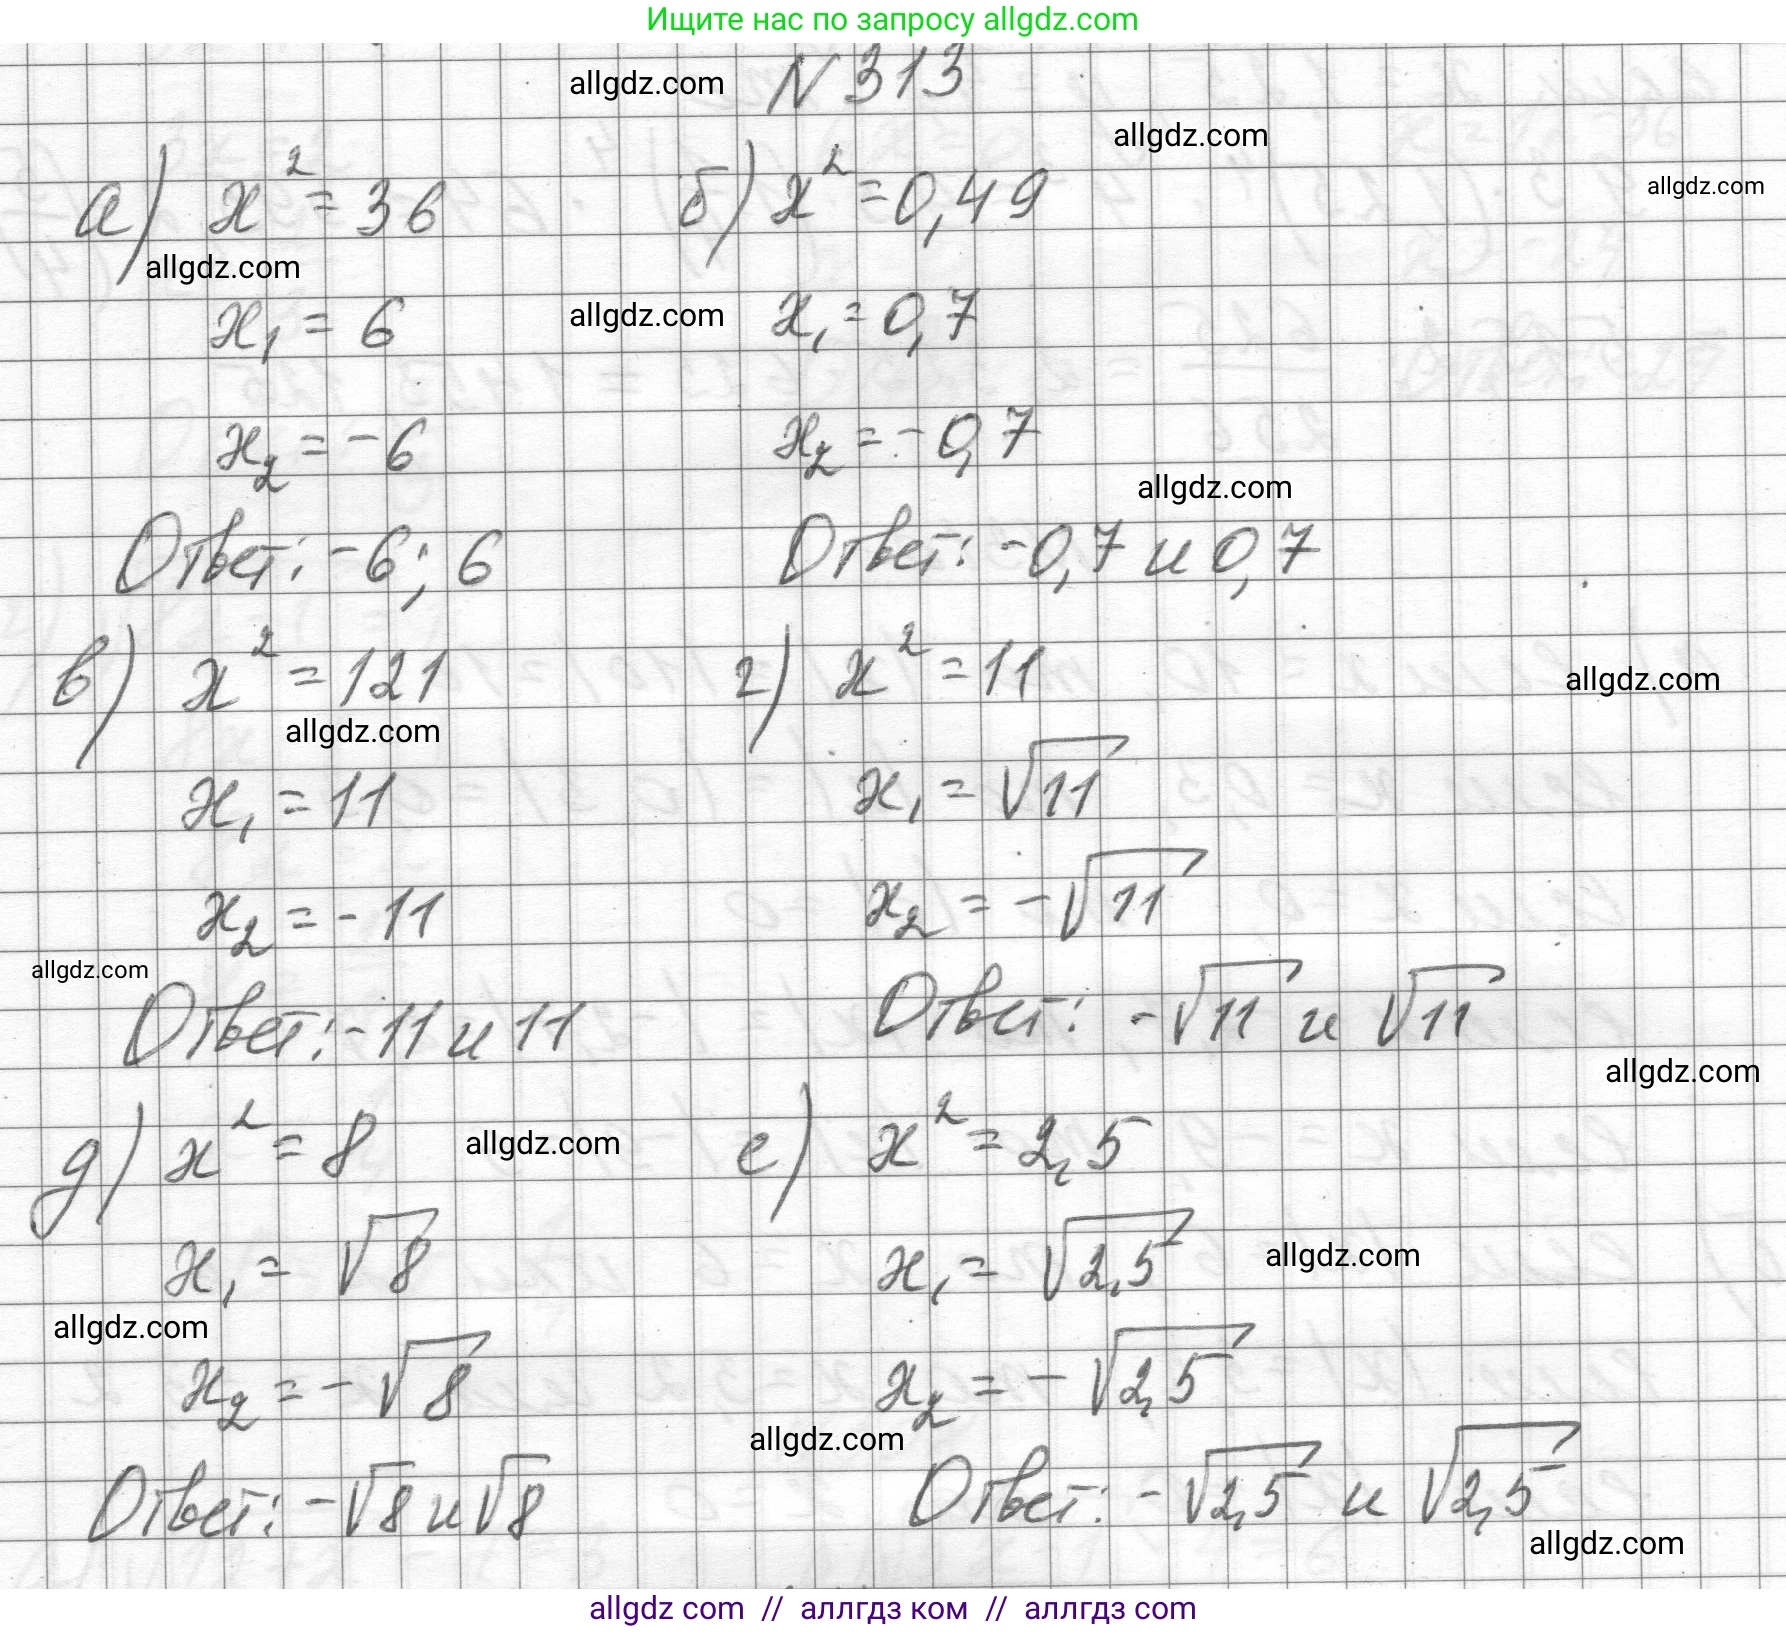 Ищите нас по запросу allgdz.com
allgdz.com
N 313
allgdz.com
allgdz.com
а) x² = 36
allgdz.com
x₁ = 6
x₂ = -6
Ответ: -6; 6
б) x² = 0,49
allgdz.com
x₁ = 0,7
x₂ = -0,7
allgdz.com
Ответ: -0,7 и 0,7
в) x² = 121
allgdz.com
x₁ = 11
x₂ = -11
allgdz.com
Ответ: -11 и 11
г) x² = 11
allgdz.com
x₁ = √11
x₂ = -√11
Ответ: -√11 и √11
allgdz.com
д) x² = 8
allgdz.com
x₁ = √8
allgdz.com
x₂ = -√8
Ответ: -√8 и √8
е) x² = 2,5
x₁ = √2,5
allgdz.com
x₂ = -√2,5
allgdz.com
Ответ: -√2,5 и √2,5
allgdz.com
allgdz com // аллгдз ком // аллгдз com